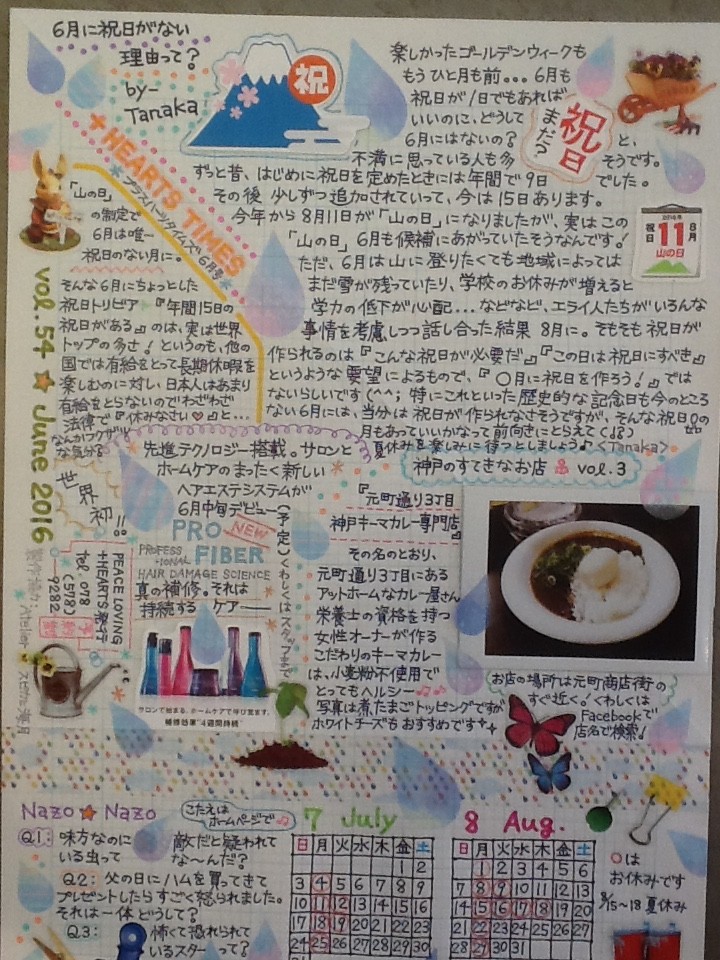 6月に祝日がない
理由って?
by-
Tanaka
祝
楽しかったゴールデンウィークも
もうひと月も前。。。6月も
祝日が1日でもあれば
いいのに、どうして
6月にはないの?
祝日
まだ?
と、
不満に思っている人も多そうです。
ずっと昔、はじめに祝日を定めたときには年間で9日でした。
その後 少しずつ追加されていって、今は15日あります。
今年から8月11日が「山の日」になりましたが、実はこの
「山の日」6月も候補にあがっていたそうなんです!
ただ、6月は山に登りたくても地域によっては
まだ雪が残っていたり、学校のお休みが増えると
学力の低下が心配...などなど、エライ人たちがいろんな
事情を考慮しつつ話し合った結果 8月に。そもそも祝日が
作られるのは『こんな祝日が必要だ』『この日は祝日にすべき』
というような要望によるもので、『〇月に祝日を作ろう!』では
ないらしいです(^^; 特にこれといった歴史的な記念日も今のところ
ない6月には、当分は祝日が作られなさそうですが、そんな祝日0の
月もあっていいかなって前向きにとらえて
夏休みを楽しみに待つとしましょう♪<Tanaka>
2016年
祝日
11
8月
山の日
+HEARTS TIMES
プラスハーツタイムズ 6月号
「山の日」
の制定で
6月は唯一
祝日のない月に。
そんな6月にちょっとした
祝日トリビア『年間15日の
祝日がある』のは、実は世界
トップの多さ!というのも、他の
国では有給をとって長期休暇を
楽しむのに対し、日本人はあまり
有給をとらないのでわざわざ
法律で『休みなさい♡』と...
なんかフクザツ
な気分?
vol.54 ★ June 2016
世界
初!!
先進テクノロジー搭載。サロンと
ホームケアのまったく新しい
ヘアエステシステムが
6月中旬デビュー
(予定)くわしくはスタッフまで
PRO NEW
PROFESS
-IONAL FIBER
HAIR DAMAGE SCIENCE
真の補修。それは
持続する ケア
サロンで始まる、ホームケアで呼び覚ます。
補修効果"4週間持続"
PEACE LOVING
+HEARTS
tel. 078
(578)
9282
予約制
神戸のすてきなお店 vol.3
『元町通り3丁目
神戸キーマカレー専門店』
その名のとおり、
元町通り3丁目にある
アットホームなカレー屋さん
栄養士の資格を持つ
女性オーナーが作る
こだわりのキーマカレー
は、小麦粉不使用で
とってもヘルシー♪♪
写真は煮たまごトッピングですが
ホワイトチーズもおすすめです
お店の場所は元町商店街の
すぐ近く!くわしくは
Facebookで
店名で検索!
Nazo★Nazo
こたえは
ホームページで♪
Q1: 味方なのに敵だと疑われて
いる虫ってな~んだ?
Q2: 父の日にハムを買ってきて
プレゼントしたらすごく怒られました。
それは一体どうして?
Q3: 怖くて恐れられて
いるスターって?
7 July
日月火水木金土
1 2
3 4 5 6 7 8 9
10 11 12 13 14 15 16
17 18 19 20 21 22 23
24 25 26 27 28 29 30
31
8 Aug.
日月火水木金土
1 2 3 4 5 6
7 8 9 10 11 12 13
14 15 16 17 18 19 20
21 22 23 24 25 26 27
28 29 30 31
○は
お休みです
8/15~18 夏休み